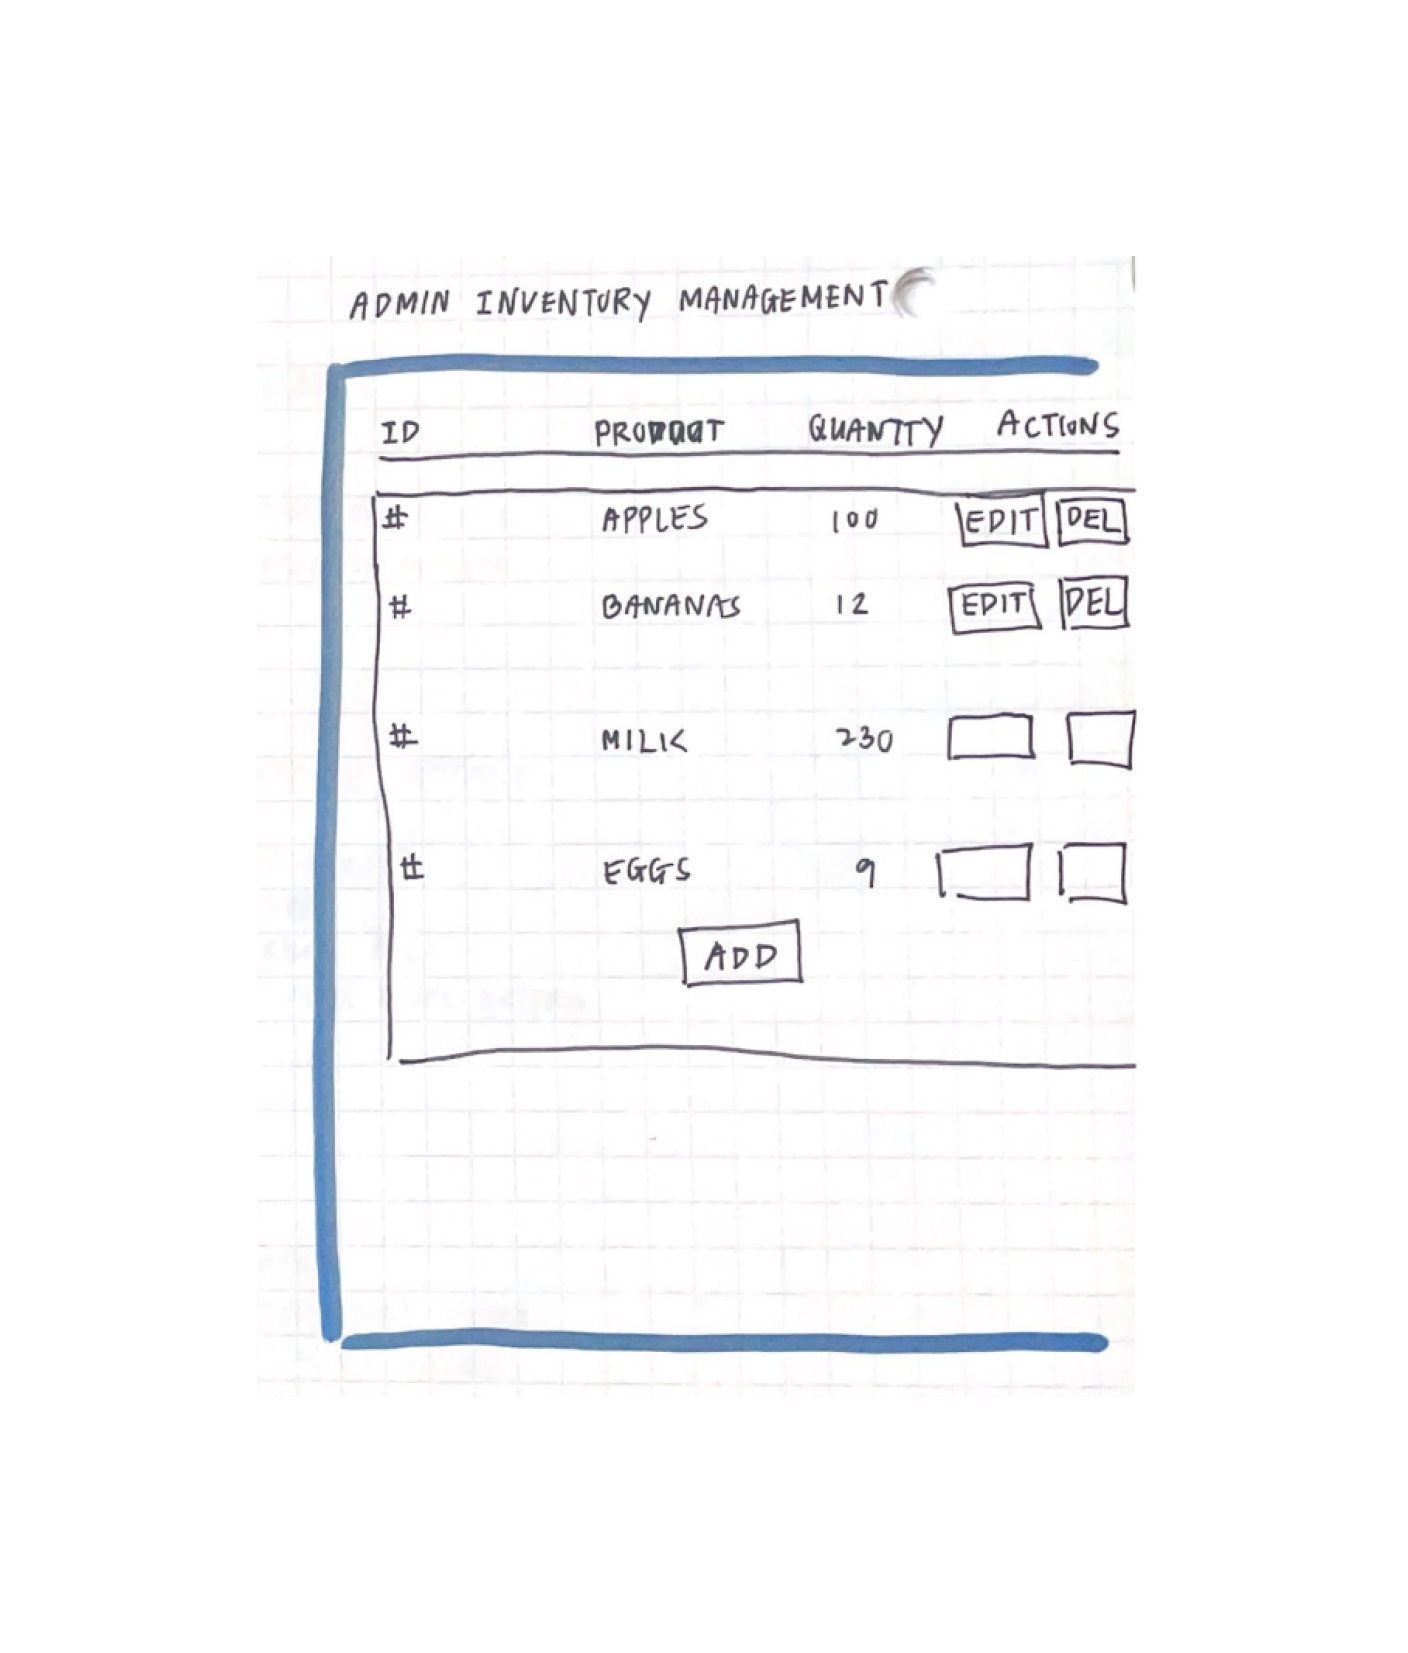 ADMIN INVENTORY MANAGEMENT
ID PRODUCT QUANTITY ACTIONS
# APPLES 100 EDIT DEL
# BANANAS 12 EDIT DEL
# MILK 230
# EGGS 9
ADD